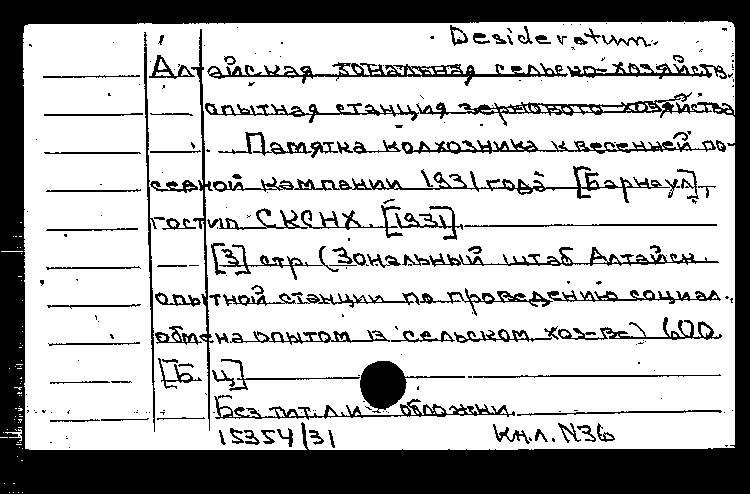 Desideratum.
Алтайская зональная сельско-хозяйств.
опытная станция зернового хозяйства
Памятка колхозника к весенней по-
севной кампании 1931 года. [Барнаул],
гостип. СКСНХ. [1931].
[3] стр. (Зональный штаб Алтайск.
опытной станции по проведению социал.
обмена опытом в сельском хоз-ве) 600
[Б. ц.]
Без тит. л. и обложки.
15354/31 Кн.л. N36